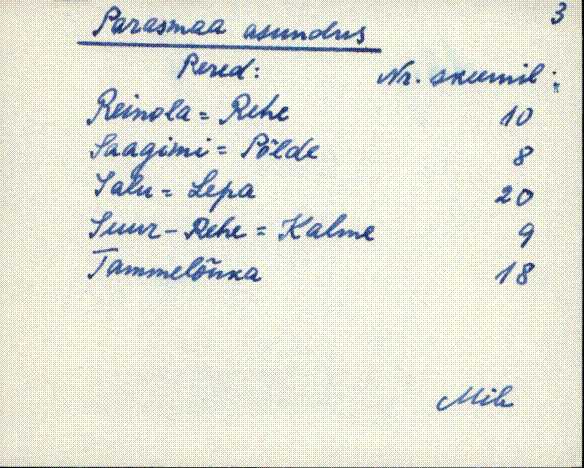 3
Parasmaa asundus
Pered: Nr. skeemil:
Reinola = Rehe 10
Saagimi = Põlde 8
Salu = Lepa 20
Suur-Rehe = Kalme 9
Tammelõuka 18
Mih